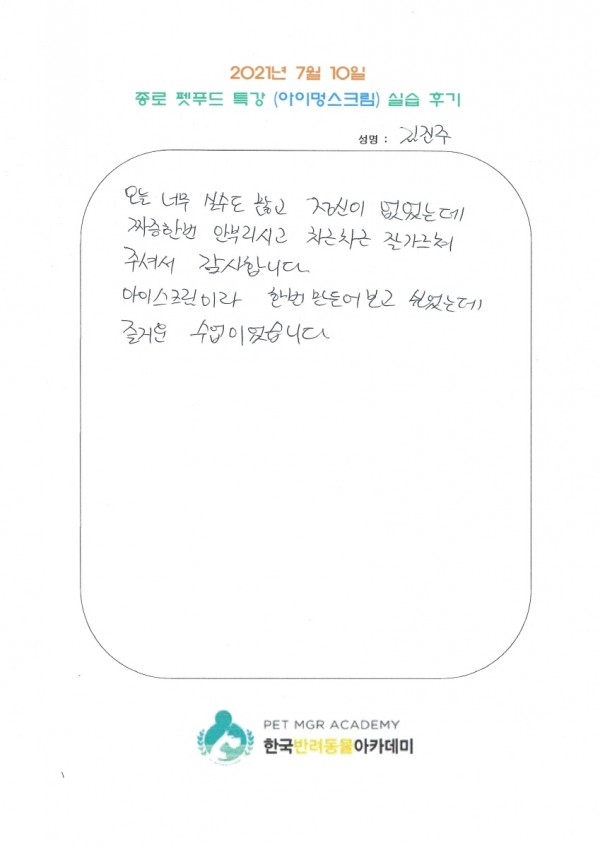 2021년 7월 10일
종로 펫푸드 특강 (아이멍스크림) 실습 후기
성명 : 김진주
오늘 너무 실수도 많고 정신이 없었는데
짜증한번 안부리시고 차근차근 잘가르쳐
주셔서 감사합니다.
아이스크림이라 한번 만들어보고 싶었는데
즐거운 수업이었습니다
PET MGR ACADEMY
한국반려동물아카데미